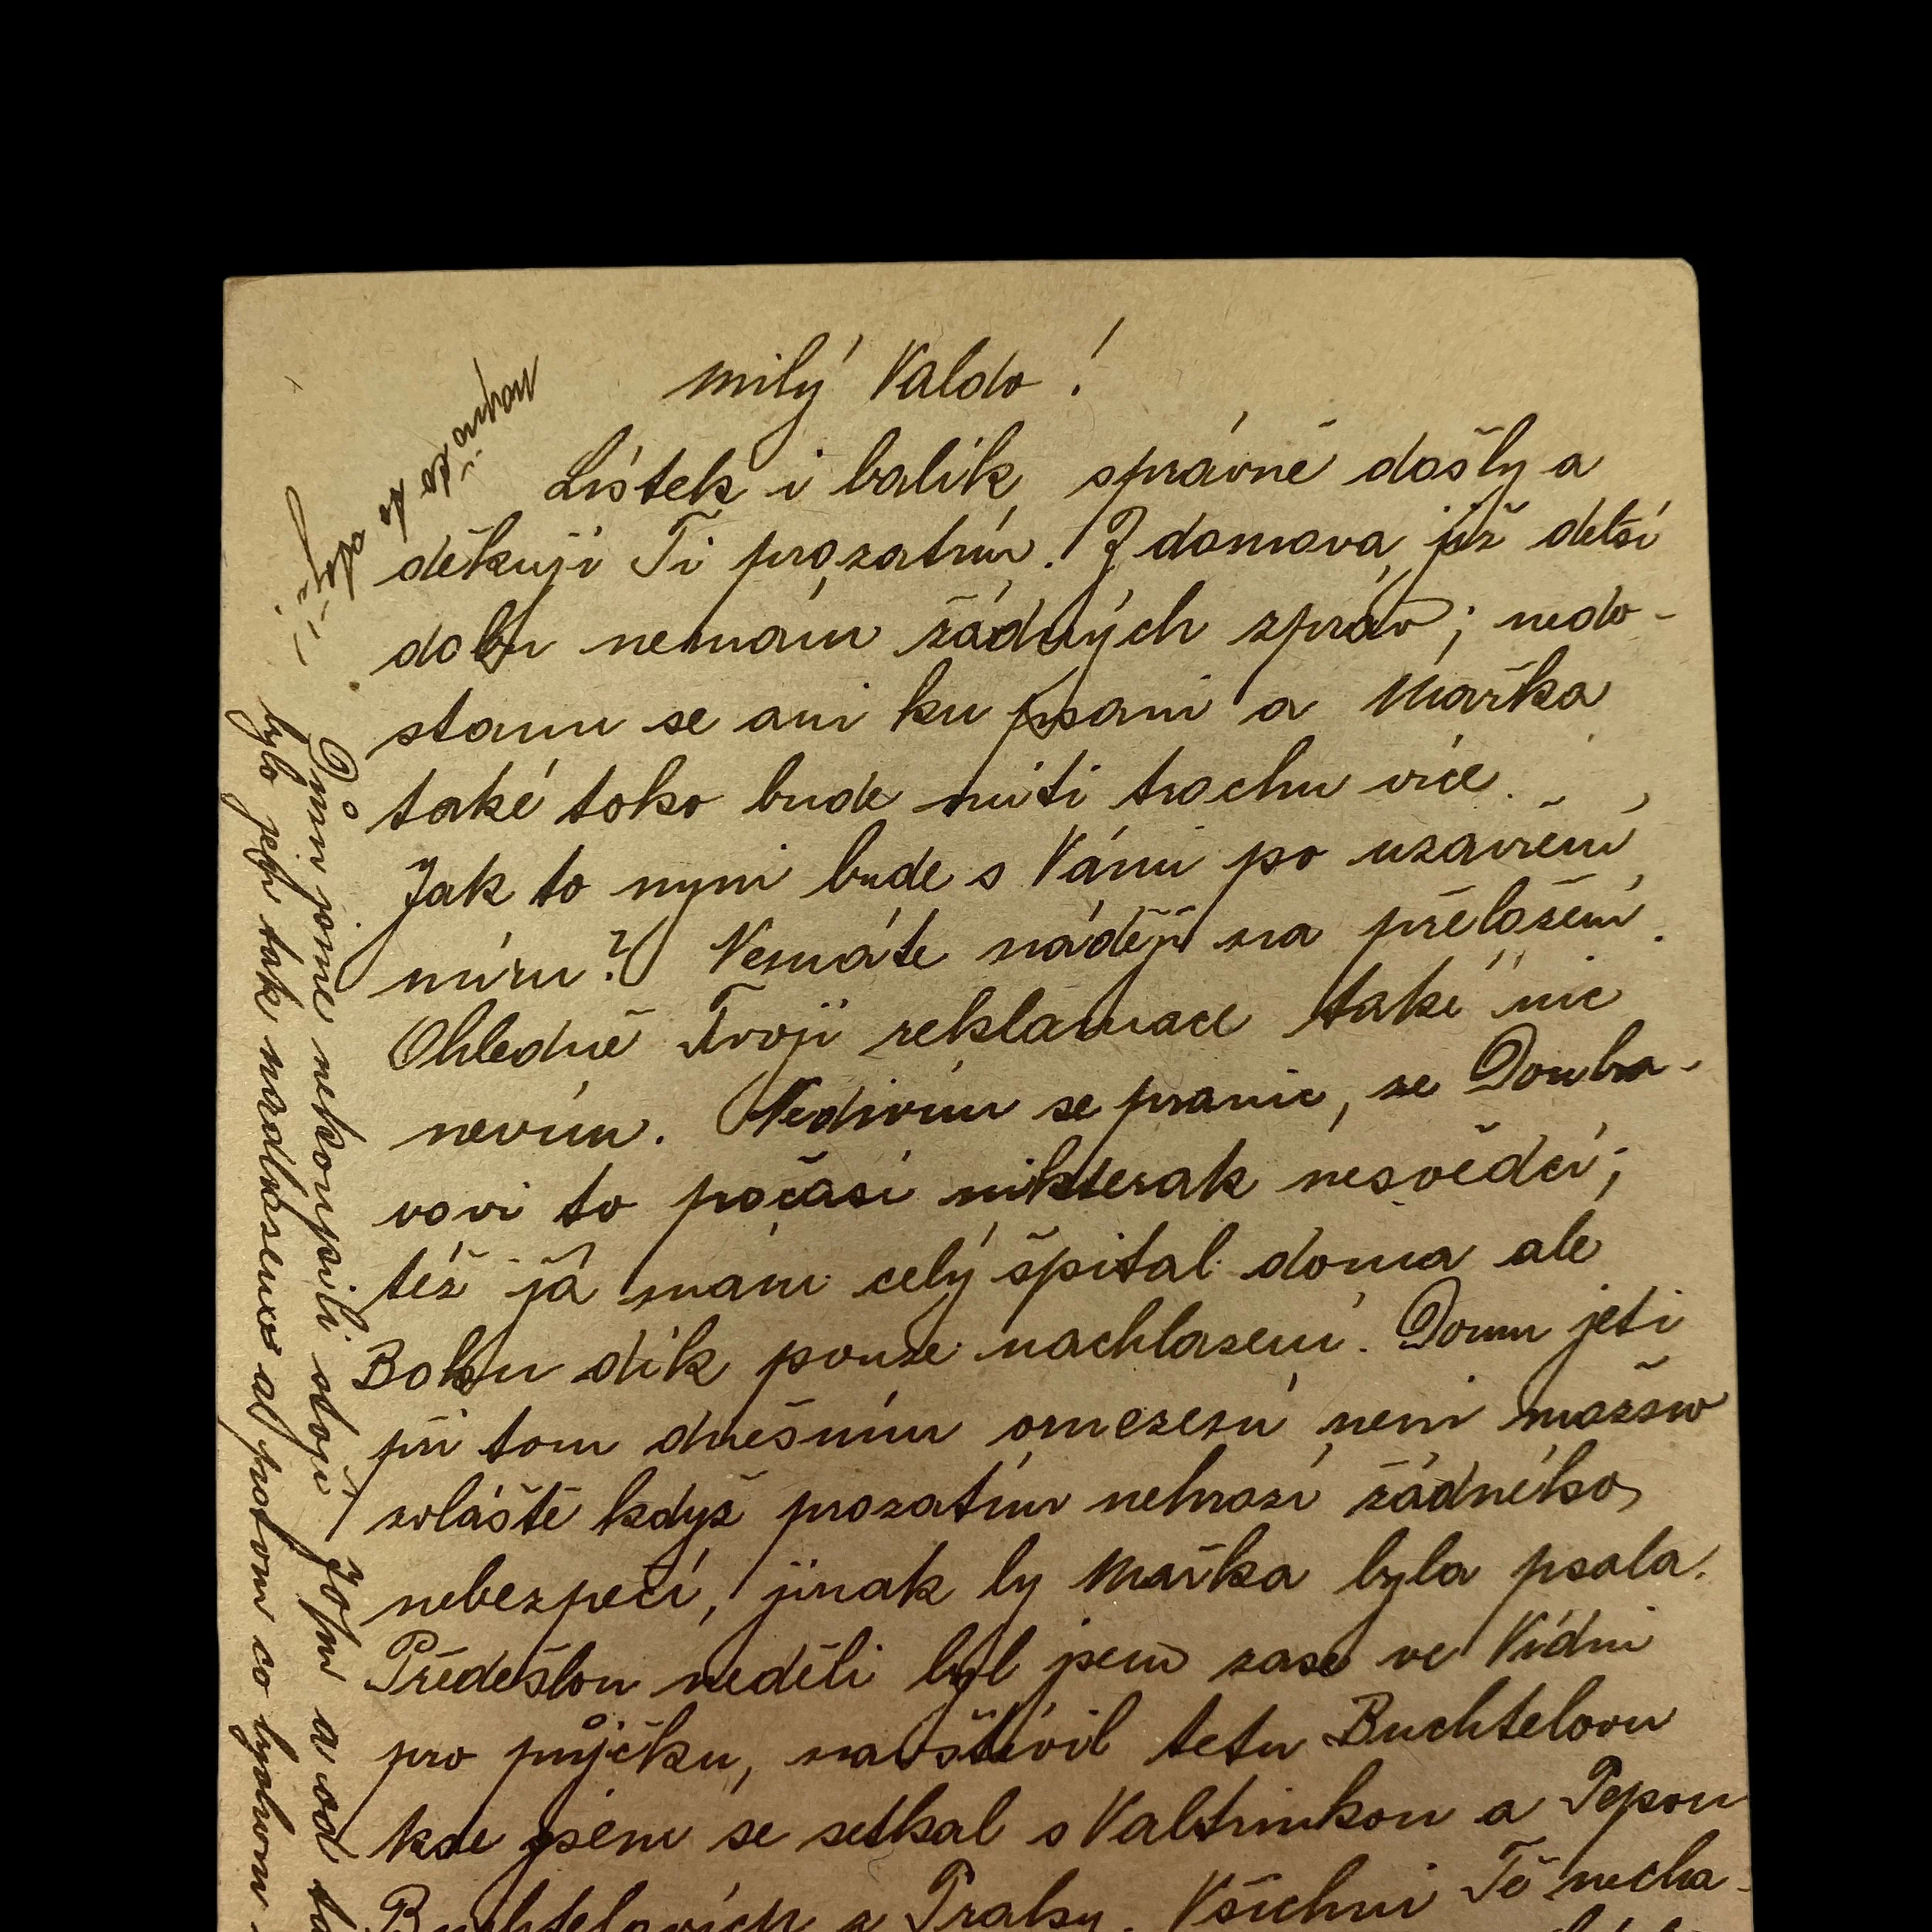 Milý Valdo!
Lístek i balík správně došly a
děkuji Ti prozatím. Z domova již delší
dobu nemám žádných zpráv; nedo-
stanu se ani ku psaní a Mařka
také toho bude míti trochu více.
Jak to nyní bude s Vámi po uzavření
míru? Nemáte naději na přeložení.
Ohledně Tvojí reklamace také nic
nevím. Nedivím se pranic, že Doubra-
vovi to počasí nikterak nesvědčí;
též já mám celý špitál doma ale
Bohu dík pouze nachlazení. Domu jeti
při tom dnešním omezení není možno
zvláště když prozatím nehrozí žádného
nebezpečí, jinak by Mařka byla psala.
Předešlou neděli byl jsem zase ve Vídni
pro půjčku, navštívil tetu Buchtelovu
kde jsem se setkal s Valtrinkou a Pepou
Buchtelových z Prahy. Všichni Tě necha-
Dům jsme nekoupili stojí
a od
bylo jeju tak nardlaseno al potom co bychom